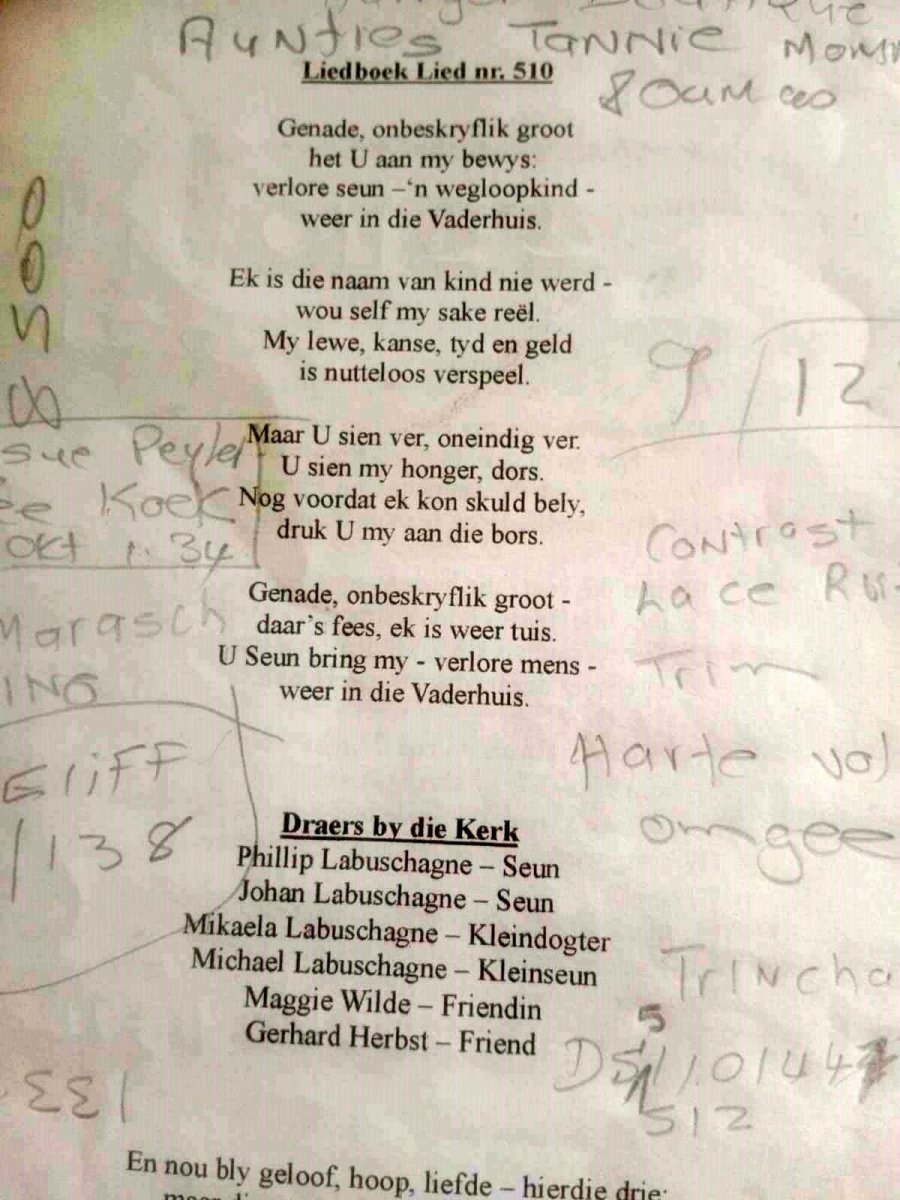 AUNTIES TANNIE
Liedboek Lied nr. 510
80am
Genade, onbeskryflik groot
het U aan my bewys:
verlore seun –‘n wegloopkind -
weer in die Vaderhuis.
Ek is die naam van kind nie werd -
wou self my sake reël.
My lewe, kanse, tyd en geld
is nutteloos verspeel.
9/12
Maar U sien ver, oneindig ver.
U sien my honger, dors.
Nog voordat ek kon skuld bely,
druk U my aan die bors.
sue
Koek
okt 1.34
Contrast
Lace
Trim
Genade, onbeskryflik groot -
daar’s fees, ek is weer tuis.
U Seun bring my - verlore mens -
weer in die Vaderhuis.
Marasch
ING
Harte vol
omgee
GliFF
1138
Draers by die Kerk
Phillip Labuschagne – Seun
Johan Labuschagne – Seun
Mikaela Labuschagne – Kleindogter
Michael Labuschagne – Kleinseun
Maggie Wilde – Friendin
Gerhard Herbst – Friend
Trincha
512
133
En nou bly geloof, hoop, liefde – hierdie drie;